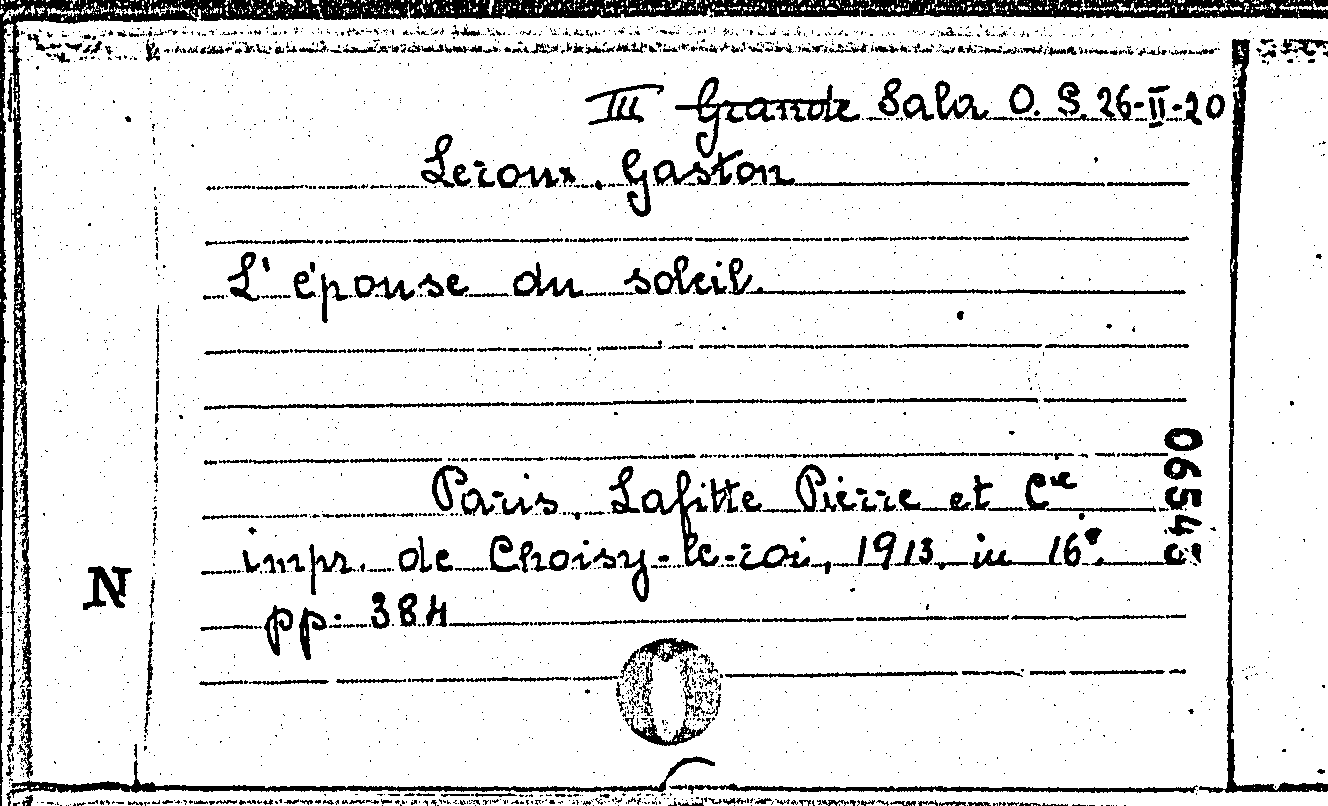 III Grande Sala O. S. 26-II-20
Leroux, Gaston
L'épouse du soleil.
Paris, Lafitte Pierre et Cie
impr. de Choisy-le-roi, 1913, in 16°.
pp. 384
N